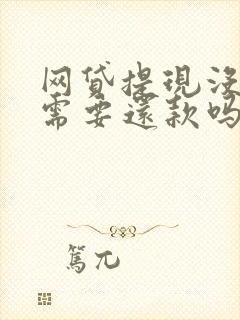 网贷提現没
需要還款吗
篤兀